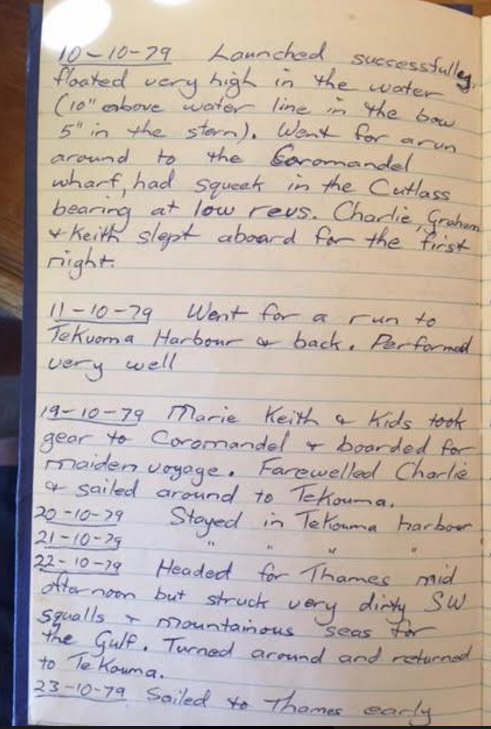 10-10-79 Launched successfully,
floated very high in the water
(10" above water line in the bow
5" in the stern). Went for a run
around to the Coromandel
wharf, had squeek in the Cutlass
bearing at low revs. Charlie, Graham
& Keith slept aboard for the first
night.
11-10-79 Went for a run to
TeKuoma Harbour & back. Performed
very well
19-10-79 Marie Keith & Kids took
gear to Coromandel & boarded for
maiden voyage. Farewelled Charlie
& sailed around to TeKouma.
20-10-79 Stayed in TeKouma harbour
21-10-79 " " " "
22-10-79 Headed for Thames mid
afternoon but struck very dirty SW
squalls & mountainous seas for
the Gulf. Turned around and returned
to TeKouma.
23-10-79 Sailed to Thames early